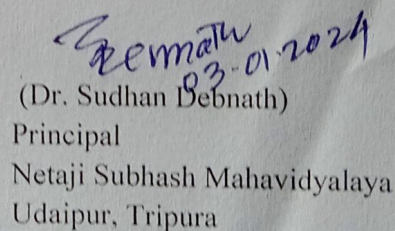 03-01-2024
(Dr. Sudhan Debnath)
Principal
Netaji Subhash Mahavidyalaya
Udaipur, Tripura